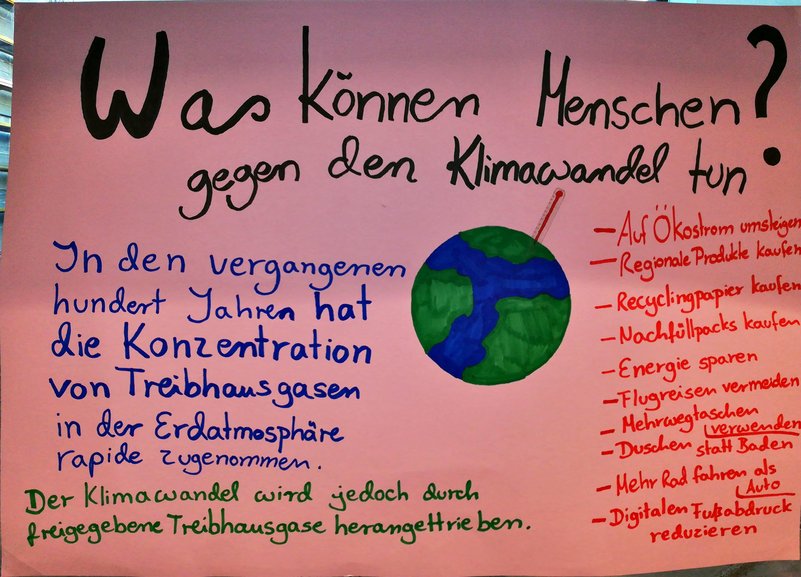 Was können Menschen?
gegen den Klimawandel tun
In den vergangenen
hundert Jahren hat
die Konzentration
von Treibhausgasen
in der Erdatmosphäre
rapide zugenommen.
Der Klimawandel wird jedoch durch
freigegebene Treibhausgase herangettrieben.
- Auf Ökostrom umsteigen
- Regionale Produkte kaufen
- Recyclingpapier kaufen
- Nachfüllpacks kaufen
- Energie sparen
- Flugreisen vermeiden
- Mehrwegtaschen
verwenden
- Duschen statt Baden
- Mehr Rad fahren als
Auto
- Digitalen Fußabdruck
reduzieren